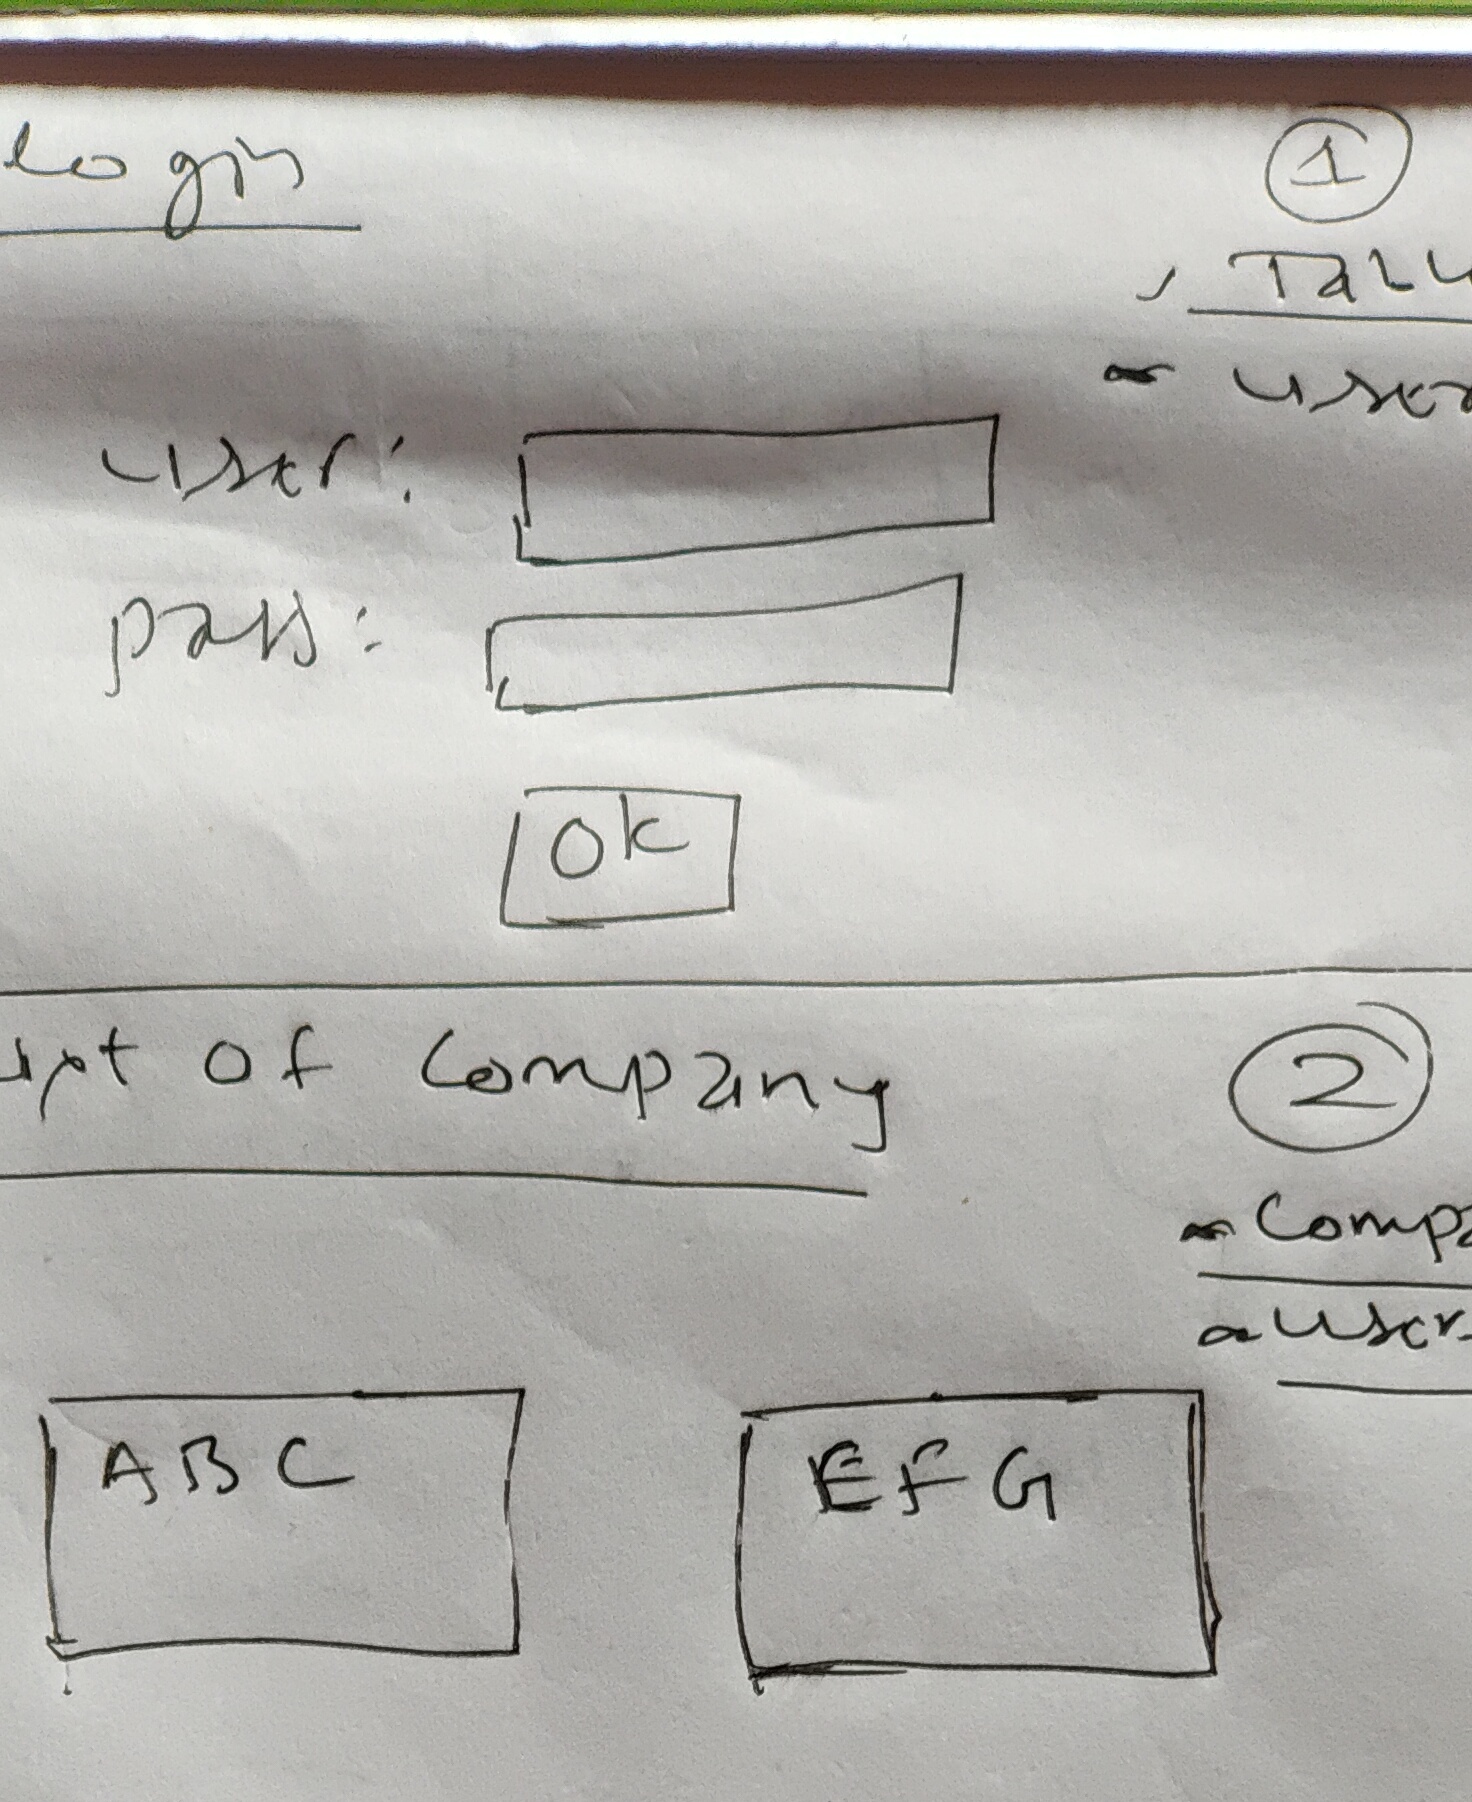 login
1
user
user:
pass:
ok
of Company
2
Compa
user
ABC
EFG